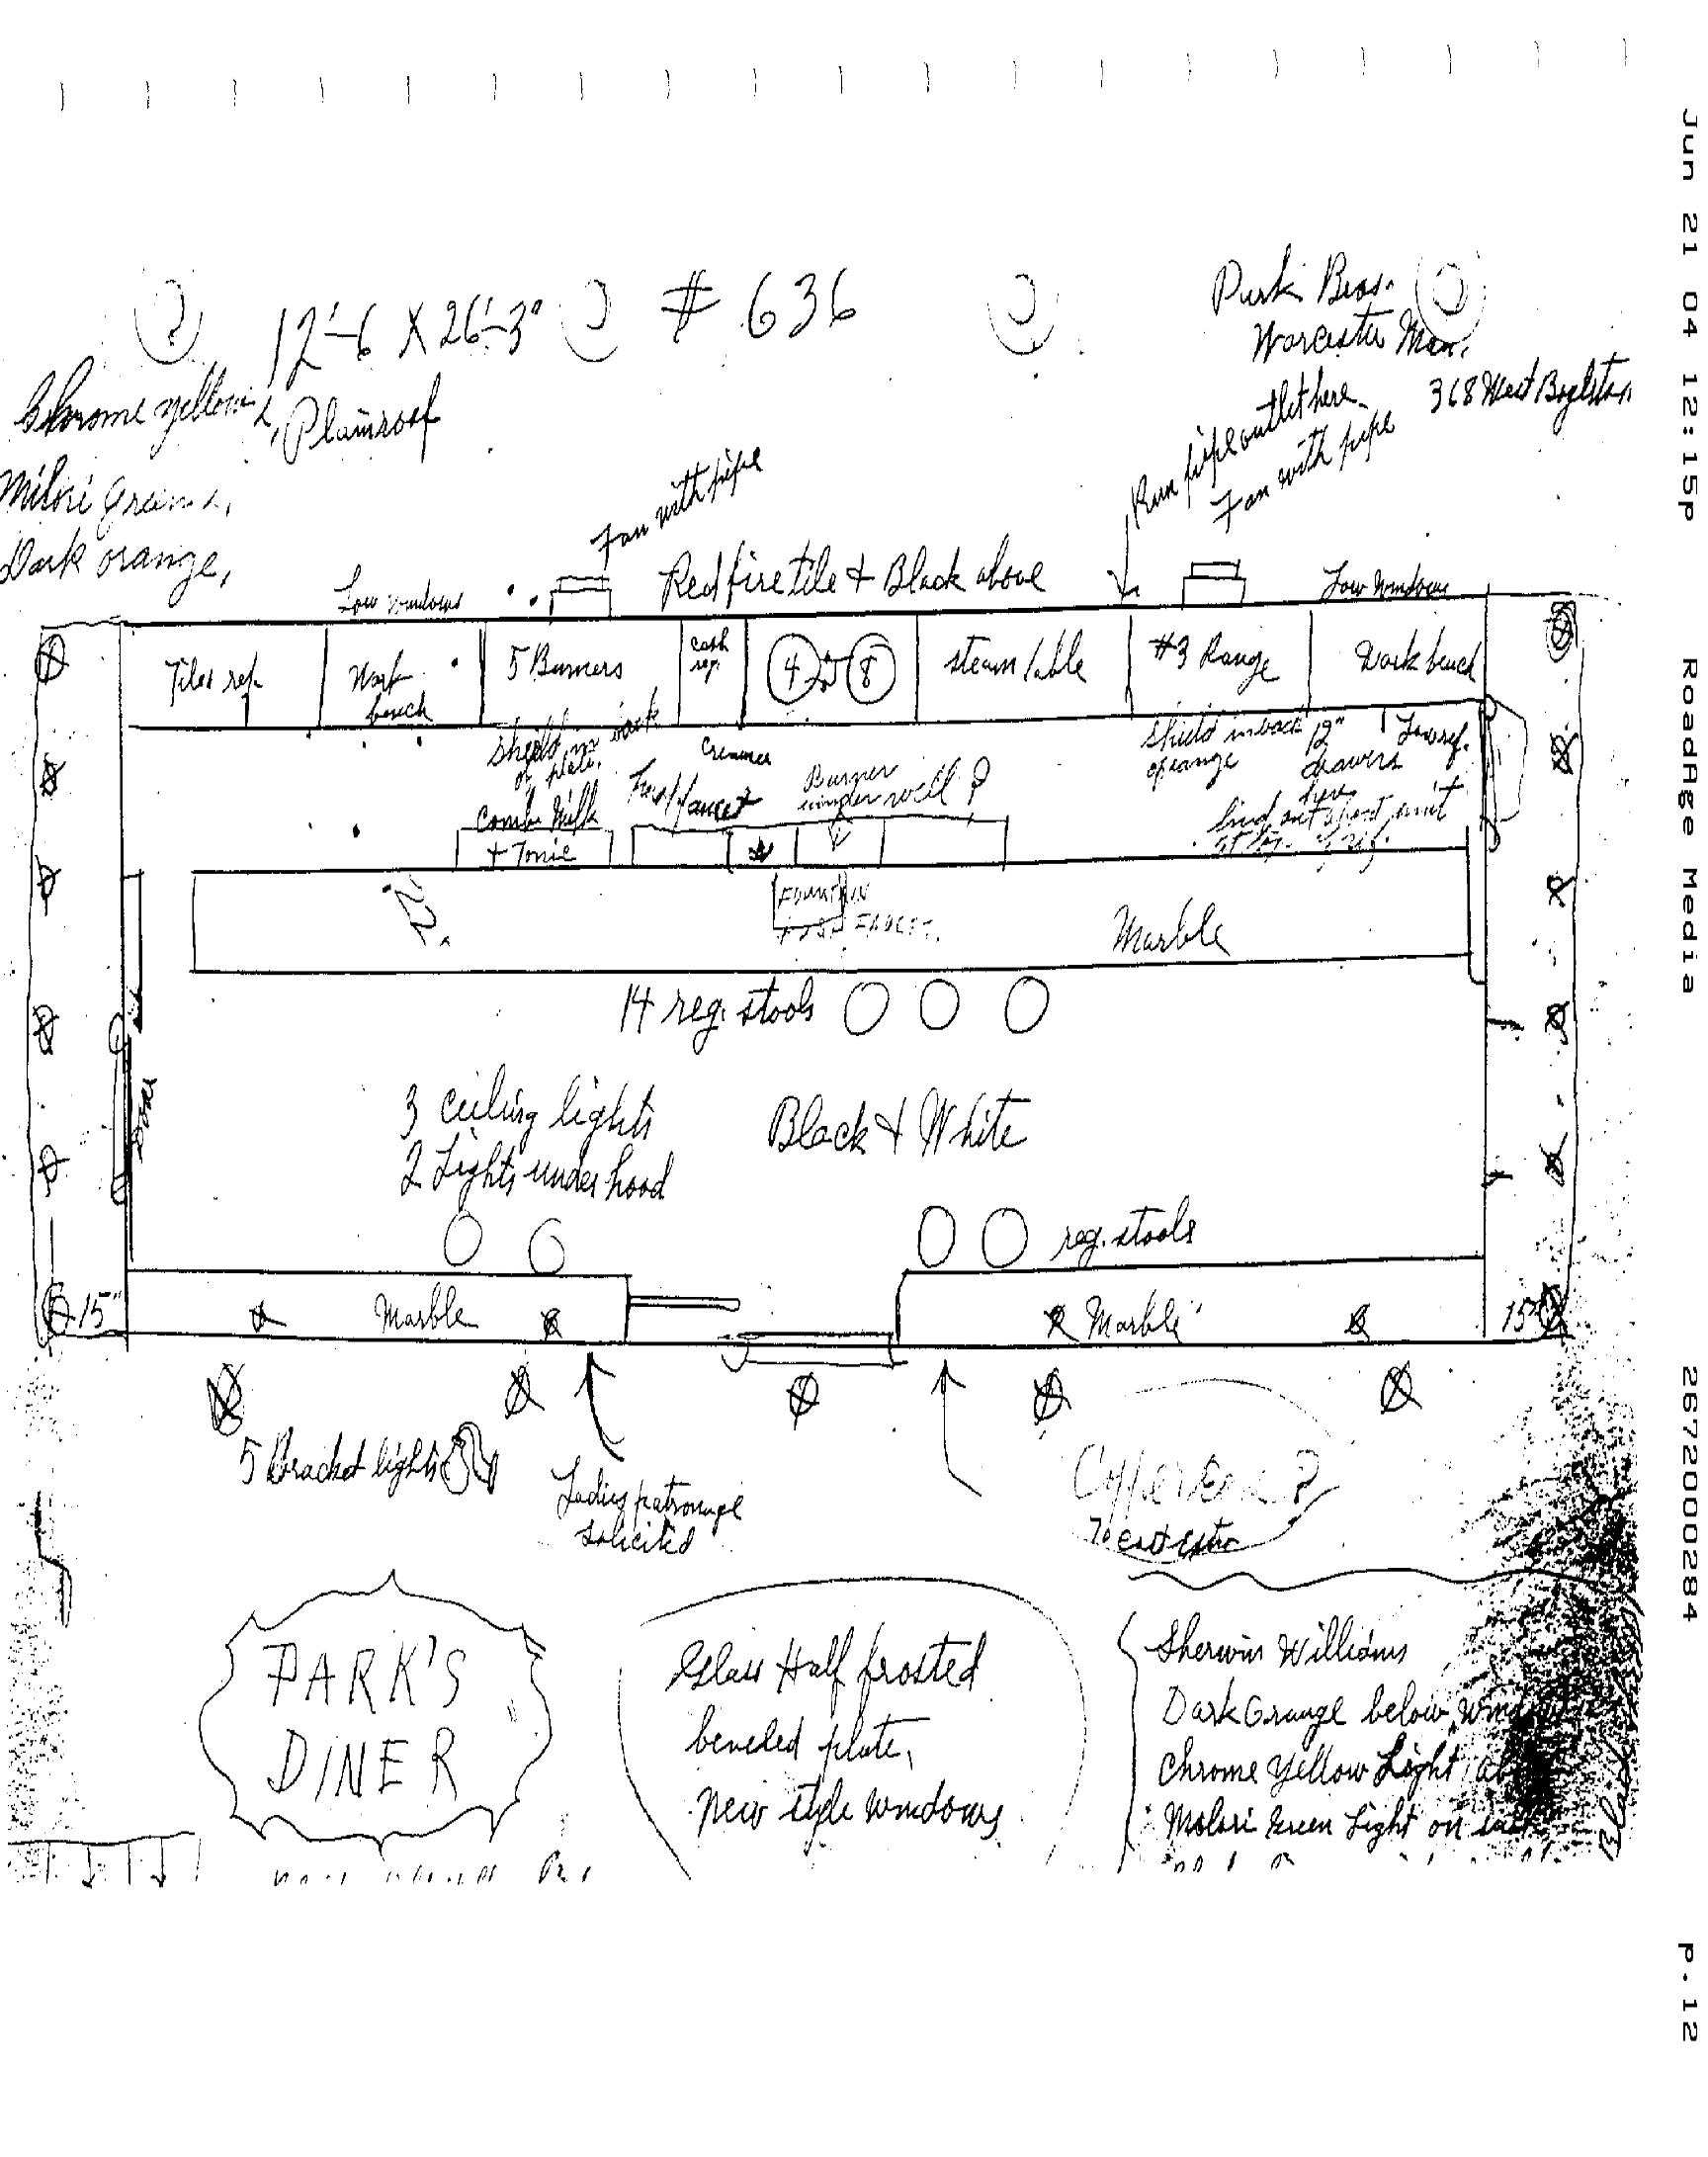 Jun 21 04 12:15p
RoadAge Media
2672000284
p.12
12'-6 X 26'-3"
# 636
Park Bros.
Worcester Mass.
368 West Boylston
Chrome yellow L,
Plain roof
Milori Green L,
Dark orange,
Fan with pipe
Run pipe outlet here
Fan with pipe
Low windows
Red fire tile + Black above
Low windows
Tiles ref.
Work bench
5 Burners
cash reg.
4
8
steam table
#3 Range
Work bench
shield in back
of plate.
Creamer
shield in back
of range
12"
drawers
here
Low ref.
Comb. Milk
+ Tonic
faucet
Burner
under well ?
find out about unit
22"
FOUNTAIN
FAUCET.
Marble
14 reg. stools
Door
3 ceiling lights
2 Lights under hood
Black & White
reg. stools
15"
Marble
Marble
15"
5 Bracket lights
Ladies patronage
solicited
PARK'S
DINER
Glass Half frosted
beveled plate,
New style windows
Sherwin Williams
Dark Orange below
Chrome Yellow Light
Molori Green Light on